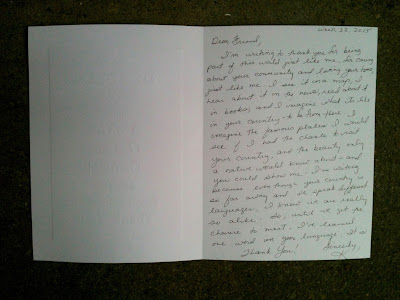 week 22, 2015
Dear Friend,
I'm writing to thank you for being
part of this world just like me, for caring
about your community and loving your home,
just like me. I see it on a map, I
hear about it in the news, read about it
in books, and I imagine what it's like
in your country - to be from there. I
imagine the famous places I would
see if I had the chance to visit
your country, and the beauty only
a native would know about - and
you could show me. I'm writing
because even though your country is
so far away and we speak different
languages, I know we are really
so alike. So, until we get the
chance to meet, I've learned
one word in your language. It is
Thank You! Sincerely,